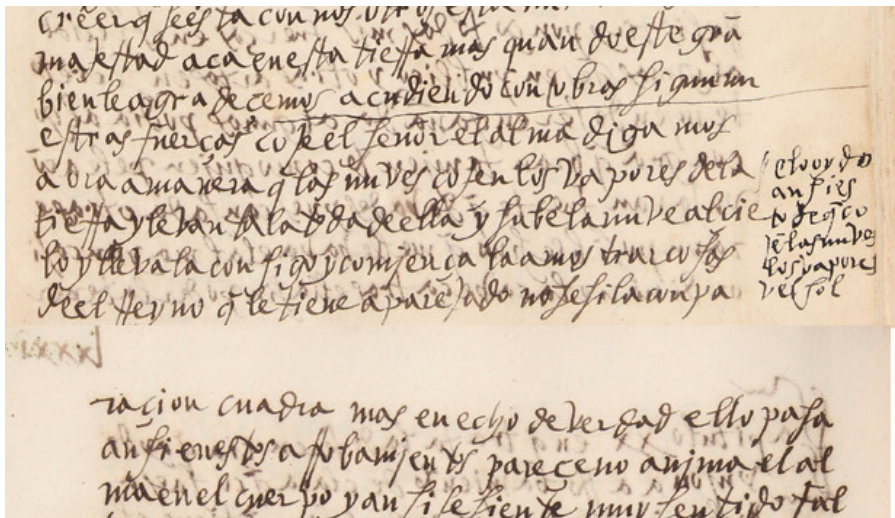 creer q se esta con nos otros esta
majestad aca en esta tierra mas quan do este grã
bien le agra decemos acudiendo con obras sigun nu
estras fuerças coje el señor el alma diga mos
aora a manera q las nuves cojen los vapores de la
tierra y levan tala toda de ella y sube la nuve al cie
lo y lleva la con sigo y comiença la a mos trar cosas
de el rreyno q le tiene apare jado no se si la conpa
elo oydo
an si es
to de q co
jē las nuves
los vapores
v el sol
racion cuadra mas en echo de verdad ello pasa
ansi en estos arrobamientos parece no anima el al
ma en el cuerpo y an si se siente muy sentido fal